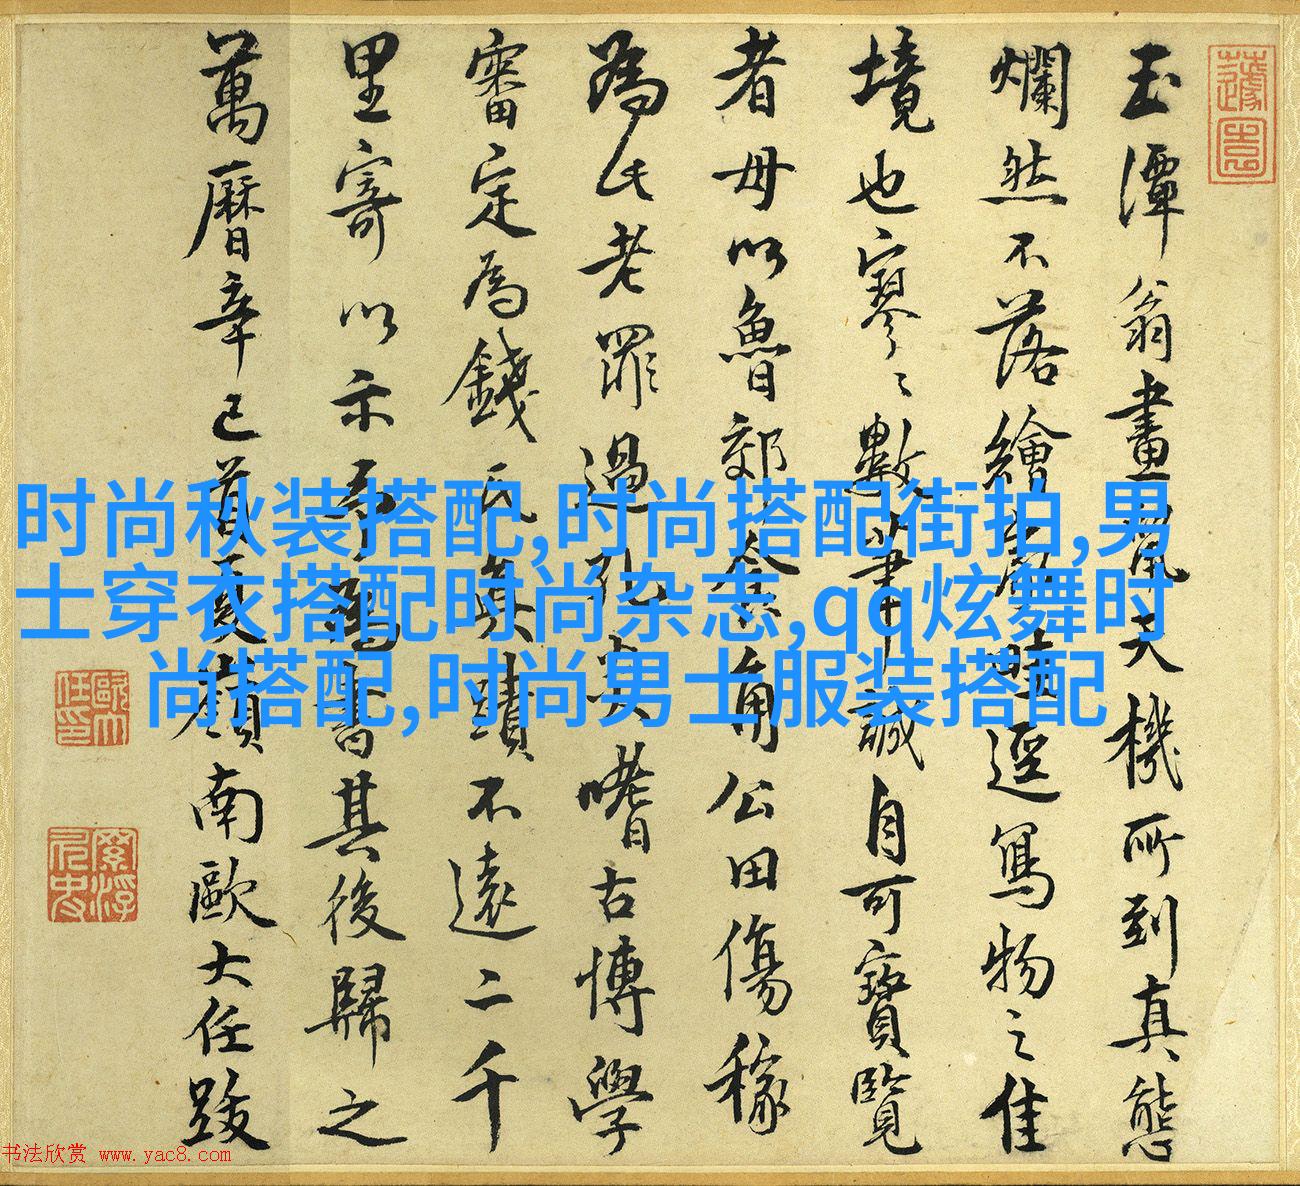 玉潭翁畫
天機所到真態
爛然不落繪
逕寫物之佳
境也寥〻數筆
誠自可寶覽
者毋以魯郊
食角公田傷稼
為氏老罪過
嗜古博學
審定為錢氏真蹟不遠二千
里寄以示予
書其後歸之
萬曆辛巳首夏嶺南歐大任跋
时尚秋装搭配,时尚搭配街拍,男
士穿衣搭配时尚杂志,qq炫舞时
尚搭配,时尚男士服装搭配
书法欣赏 www.yac8.com